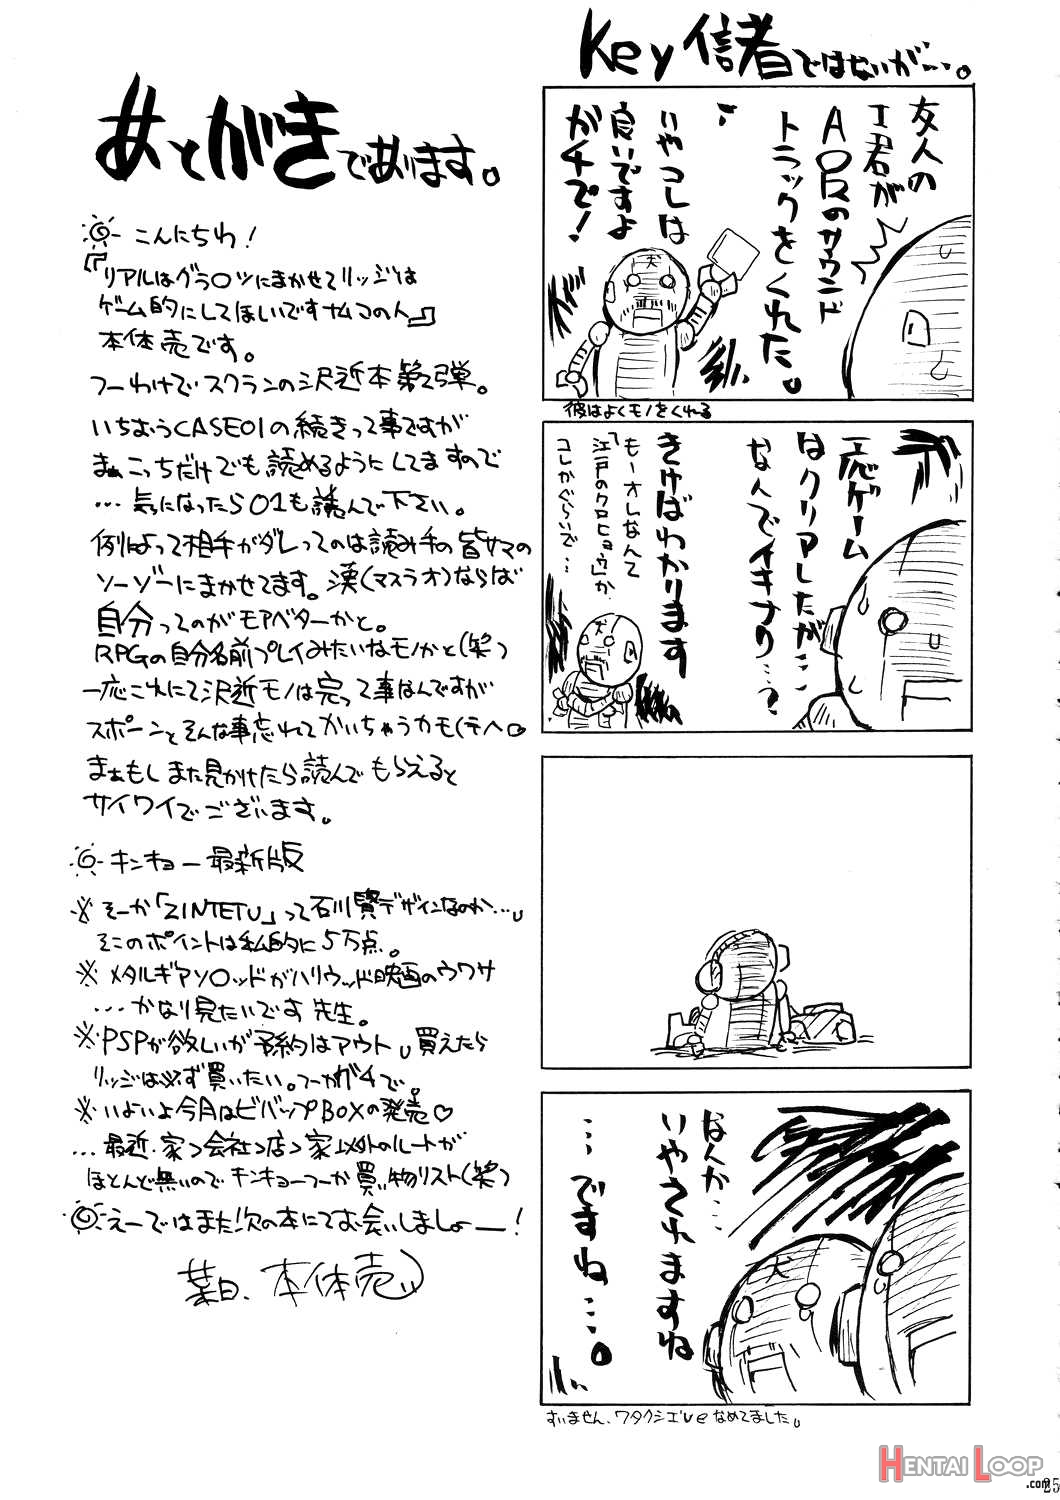 Key信者ではないが…。
友人の
I君が
AIRのサウンド
トラックをくれた。
いやコレは
良いですよ
ガチで!
彼はよくモノをくれる
一応ゲーム
はクリアしたが…
なんでイキナリ…?
きけばわかります
もーオレなんて
「江戸のクロヒョウ」か
コレかぐらいで…
なんか…
いやされますね
…ですね…。
すいません、ワタクシエ'veなめてました。
あとがきであります。
こんにちわ!
『リアルはグラ○ツにまかせてリッジは
ゲーム的にしてほしいですナムコの人』
本体売です。
つーわけでスクランの沢近本第2弾。
いちおうCASE01の続きって事ですが
まぁこっちだけでも読めるようにしてますので
…気になったら01も読んで下さい。
例によって相手がダレってのは読み手の皆サマの
ソーゾーにまかせてます。漢(マスラオ)ならば
自分ってのがモアベターかと。
RPGの自分名前プレイみたいなモノかと(笑)
一応これにて沢近モノは完って事なんですが
スポーンとそんな事忘れてかいちゃうカモ(テヘ。
まぁもしまた見かけたら読んでもらえると
サイワイでございます。
キンキョー最新版
※そーか「ZINTETU」って石川賢デザインなのか…。
そこのポイントは私的に5万点。
※メタルギアソ○ッドがハリウッド映画のウワサ
…かなり見たいです先生。
※PSPが欲しいが予約はアウト。買えたら
リッジは必ず買いたい。つーかガチで。
※いよいよ今月はビバップBOXの発売♡
…最近、家→会社→店→家以外のルートが
ほとんど無いのでキンキョーつーか買い物リスト(笑)
えーではまた!次の本にてお会いしましょー!
葉日、本体売
HENTAI LOOP
.com
25